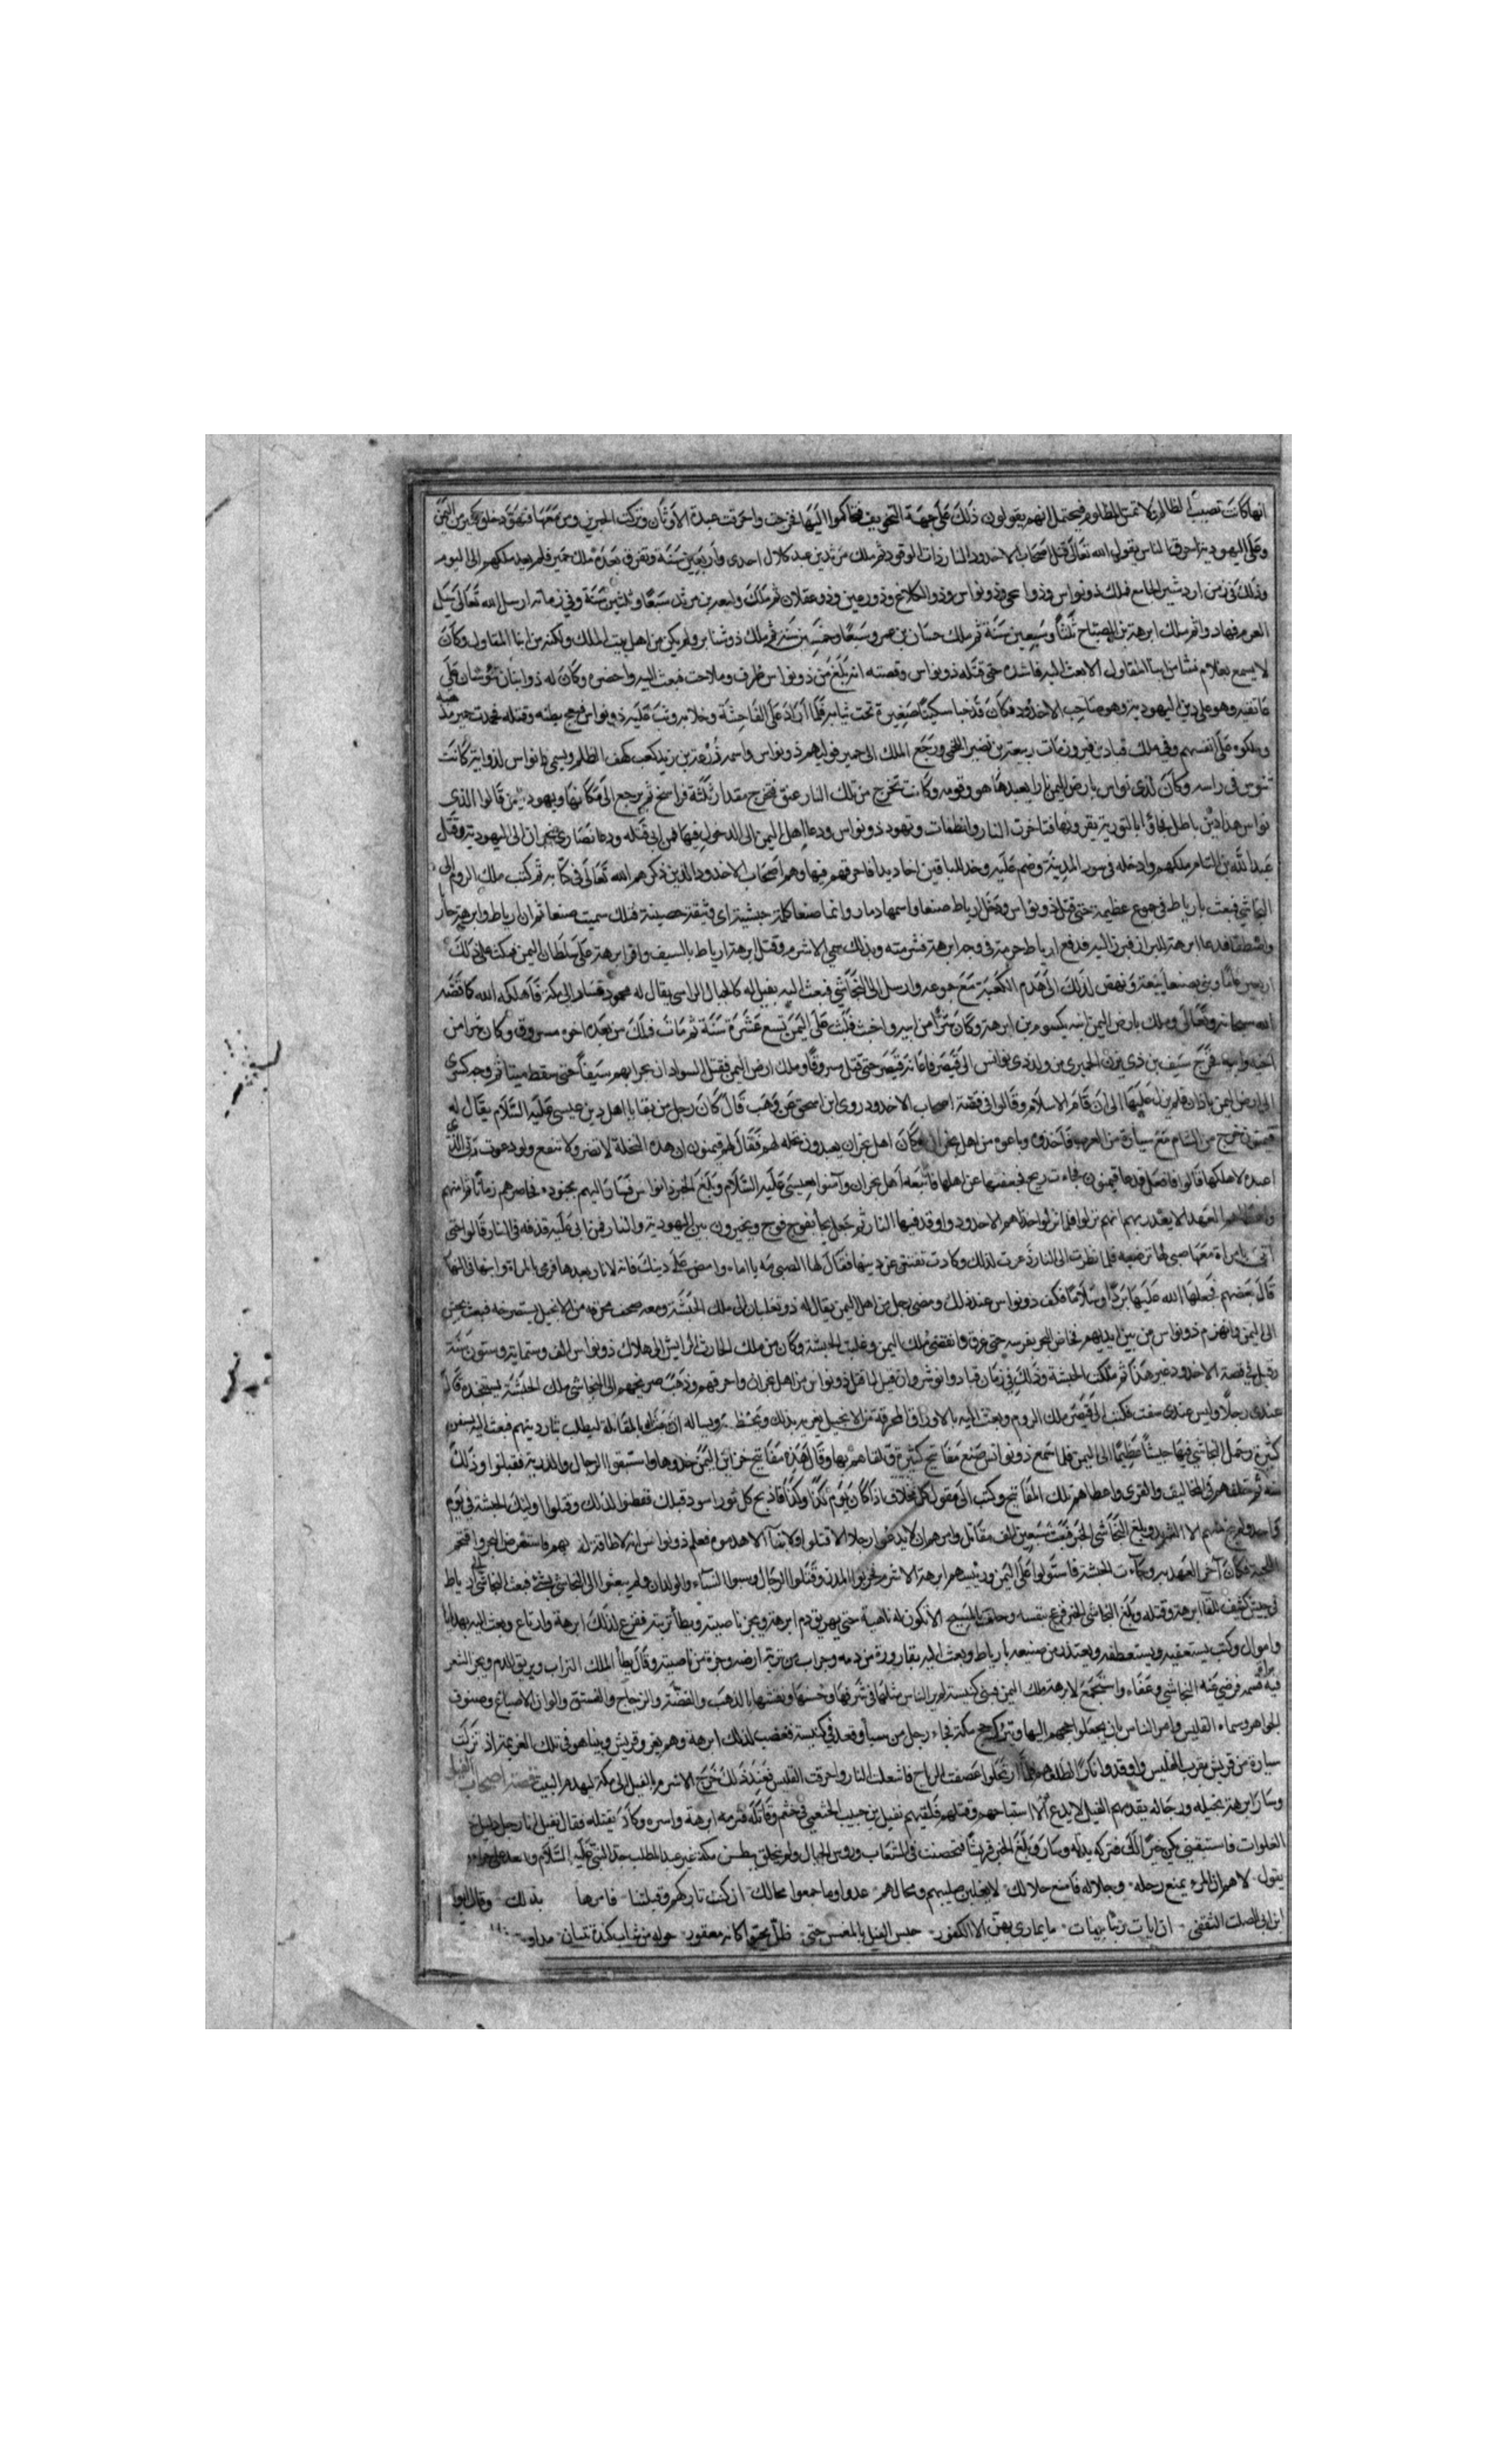 انها كانت تصيب الظالم ولا تمس المظلوم فيحتمل انهم يقولون ذلك على جهة التخويف فتحاكموا اليها فخرجت واحرقت عبدة الاوثان وتركت الحبرين ومن معها فتهود خلق كثير من اليمن
وعلى اليهودية احرقنا لناس يقول الله تعالى قتل اصحاب الاخدود النار ذات الوقود ثم ملك مرثد بن عبد كلال احدى واربعين سنة وتفرق بعده ملك حمير فلم يعد ملكهم الى اليوم
وذلك في زمن اردشير الجامع فملك ذو نواس وذو نواس وذو الكلاع وذو رعين وذو عقلان ثم ملك وليعة بن مرثد سبعا وثلثين سنة وفي زمانه ارسل الله تعالى سيل
العرم فهاد واثم ملك ابرهة بن الصباح ثلثا وسبعين سنة ثم ملك حسان بن عمرو سبعا وخمسين سنة ثم ملك ذو شناتر ولم يكن من اهل بيت الملك ولكنه من ابنا المقاول وكان
لا يسمع بغلام نشأ من ابنا المقاول الا بعث اليه فافسده حتى قتله ذو نواس وقصته انه بلغه عن ذو نواس ظرف وملاحت فبعث اليه واحضره وكان له ذوابتان تنوسان على
عاتقيه وهو على دين اليهودية وهو صاحب الاخدود فكان قد خبا سكينا صغيرة تحت ثيابه فلما اراده على الفاحشة وخلا به وثب عليه ذو نواس فبعج بطنه وقتله فحمدت حمير
وملكوه على انفسهم وفي ملك قباد بن فيروز مات ربيعة بن نصر اللخمي ورجع الملك الى حمير فوليهم ذو نواس واسمه زرعة بن زيد بن كعب كهف الظلم ويسمى ذا نواس لذوابة كانت
تنوس في راسه وكان لذي نواس بارض اليمن نارا يعبدها هو وقومه وكانت تخرج من تلك النار عنق فتخرج مقدار ثلثة فراسخ ثم يرجع الى مكانها ويهود من قالوا الذى
نواس هذا دين باطل فجاؤا بالتورية يقرونها فتاخرت النار وانطفات وتهود ذو نواس ودعا اهل اليمن الى الدخول فيها فمن ابى قتله ودعا نصارى نجران الى اليهودية وقتل
عبد الله بن الثامر ملكهم وادخله في سور المدينة وضم عليه وخد للباقين اخاديدا فاحرقهم فيها وهم اصحاب الاخدود الذين ذكرهم الله تعالى في كتابه ثم كتب ملك الروم الى
النجاشي فبعث بارياط في جموع عظيمة حتى قتل ذو نواس ودخل ارياط صنعا واسمها دمار وانما صنعا كلمة حبشية اى وثيقة حصينة فلذلك سميت صنعا ثم ان ارياط وابرهة
فدعا ابرهة للبراز فبرز اليه فدفع ارياط حربة في وجه ابرهة فشرمته وبذلك سمي الاشرم وقتل ابرهة ارياط بالسيف واقر ابرهة على سلطان اليمن فمكث على ذلك
اربعين عاما وبنى بصنعا بيعة ونهض لذلك الى هدم الكعبة مع جموعه وارسل الى النجاشي فبعث اليه بفيل له كالجبال الراسى يقال له محمود فسار الى مكة فاهلكه الله كما قصه
الله سبحانه وتعالى وملك بارض اليمن ابنه يكسوم بن ابرهة وكان شرا من ابيه واخبث فلبث على اليمن تسع عشرة سنة ثم مات فملك من بعده اخوه مسروق وكان شرا من
اخيه وابيه فخرج سيف بن ذي يزن الحميرى من ولد ذى نواس الى قيصر فاعانه قيصر حتى قتل مسروقا وملك ارض اليمن فقتل السوادان بحرابهم سيفا حتى سقط ميتا ثم وجه كسرى
الى ارض اليمن باذان فلم يزل عليها الى ان قام الاسلام وقالوا في قصة اصحاب الاخدود روى ابن اسحق عن وهب قال كان رجل من بقايا اهل دين عيسى عليه السلام يقال له
فيميون فخرج من الشام مع سيارة من العرب فاخذوه وباعوه من اهل نجران وكان اهل نجران يعبدون نخله لهم فقال لهم قيمون ان هذه النخلة لا تضر ولا تنفع ولو دعوت ربى الذى
اعبده لاهلكها قالوا فافعل فدعا قيمون فجاءت ريح فجعفتها عن اصلها فاتبعه اهل نجران وآمنوا بعيسى عليه السلام وبلغ الخبر ذا نواس فسار اليهم بجنوده فحاصرهم زمانا ثم امنهم
واعطاهم العهد لا يغدر بهم انهم نزلوا فلما نزلوا خد لهم الاخدود واوقد فيها النار ثم جعل يجا بفوج فوج ويخيرون بين اليهودية والنار فمن ابى عليه قذفه في النار قالوا حتى
اتى بامراة معها صبي لها ترضعه فلما نظرت الى النار ذعرت لذلك وكادت تفتتن عن دينها فقال لها الصبي مه يا اماه وامض على دينك فانه لا نار بعدها فرمى بالمراة وابنها في النار
قال بعضهم فجعلها الله عليها بردا وسلاما فكف ذو نواس عند ذلك ومضى رجل من اهل اليمن يقال له ذو ثعلبان الى ملك الحبشة ومعه صحف محرقه من الانجيل يستصرخه فبعث بجيش
الى اليمن وانهزم ذو نواس من بين ايديهم فخاض البحر بفرسه حتى غرق وانقضى ملك اليمن وغلبت الحبشة وكان من ملك الحارث الرايش الى هلاك ذو نواس الف وستماية وستون سنة
وقيل في قصة الاخدود غير هذا ثم ملكت الحبشة وذلك في زمان قباد وانوشروان قيل لما قتل ذو نواس من اهل نجران واحرقهم وذهب صريخهم الى النجاشي ملك الحبشة يستنجده قال
عندى رجلا وليس عندى سفن فكتب الى قيصر ملك الروم وبعث اليه بالاوراق المحرقة من الانجيل يغريه بذلك ويحفظه ويساله ان بالمقابلة ليطلب بثار دينهم فبعث اليه بسفن
كثيرة وحمل النجاشي فيها جيشا عظيما الى اليمن فلما سمع ذو نواس صنع مفاتيح كثيرة ثم لقاهم بها وقال هذه مفاتيح خزاين اليمن خذوها واستبقوا الرجال والذرية فقبلوا وذلك
منه ثم خلفهم في المخاليف والقرى واعطاهم تلك المفاتيح وكتب الى مقول كل مخلاف اذا كان يوم كذا وكذا فاذبح كل ثور اسود قبلك ففطنوا لذلك وقتلوا اوليك الحبشة في يوم
منهم الا الشريد وبلغ النجاشي الخبر فبعث سبعين الف مقاتل وامرهم ان لا يدعوا رجلا الا قتلوا ولا بناء الا هدموه فعلم ذو نواس انه لا طاقة له بهم فاستعرض البحر واقتحم
اللجة فكان آخر العهد به وجاءت الحبشة فاستولوا على اليمن ورئيسهم ابرهة الاشرم فخربوا المدن وقتلوا الرجال وسبوا النساء والولدان ولم يبعثوا الى النجاشي بشئ فبعث النجاشي ارياط
في جيش كثيف للقا ابرهة وقتله وبلغ النجاشي الخبر فرع بنفسه وحلف بالمسيح الا تكون له ناهية حتى يهريق دم ابرهة ويجز ناصيته ويطأ تربته ففزع لذلك ابرهة وارتاع وبعث اليه بهدايا
واموال وكتب يستعفيه ويستعطفه ويعتذر من صنيعه بارياط وبعث اليه بقارورة من دمه وجراب من تربة ارضه وجزة من ناصيته وقال يطأ الملك التراب ويريق الدم ويجز الشعر
فيه قسمه فرضي عنه النجاشي وعفاه واستجمع لابرهة ملك اليمن فبنى كنيسة لم ير الناس مثلها في شرفها وحسنها ونقشها بالذهب والفضة والزجاج والفستق والوان الاصباغ وصنوف
الجواهر وسماه القليس وامر الناس بان يجعلوا حجهم اليها ويتركوا حج مكة فجاء رجل من سبا وقعد في كنيسة فغضب لذلك ابرهة وهم بغزو قريش وبينا هو في تلك العزيمة اذ نزلت
سيارة من قريش بقرب القليس واوقدوا نارا فلما ارتحلوا عصفت الرياح فاشعلت النار واحرقت القليس فعند ذلك خرج الاشرم بالفيل الى مكة ليهدم البيت قصة اصحاب الفيل
وسار ابرهة بخيله ورجاله يقدمهم الفيل لا يدع الا استباحهم وقتلهم فلقيهم نفيل بن حبيب الخثعمي في خثعم وقاتله فهزمه ابرهة واسره وكاد يقتله فقال نفيل انا رجل دليل
الفلوات فاستبقيني يكن خيرا لك فتركه يدله وسار وبلغ الخبر قريشا فتحصنت في الشعاب وروس الجبال ولم يتخلق ببطن مكة غير عبد المطلب جد النبي عليه السلام
يقول لاهم ان المرء يمنع رحله وحلاله فامنع حلالك لا يغلبن صليبهم ومحالهم عدوا وما جمعوا محالك ان كنت تاركهم وقبلتنا فامرها بذلك وقال ابو
ابن ابى الصلت الثقفي ان ايات ربنا بينات ما يمارى بهن الا الكفور حبس الفيل بالمغمس حتى ظل يحبوا كانه معقور حوله من شباب كندة